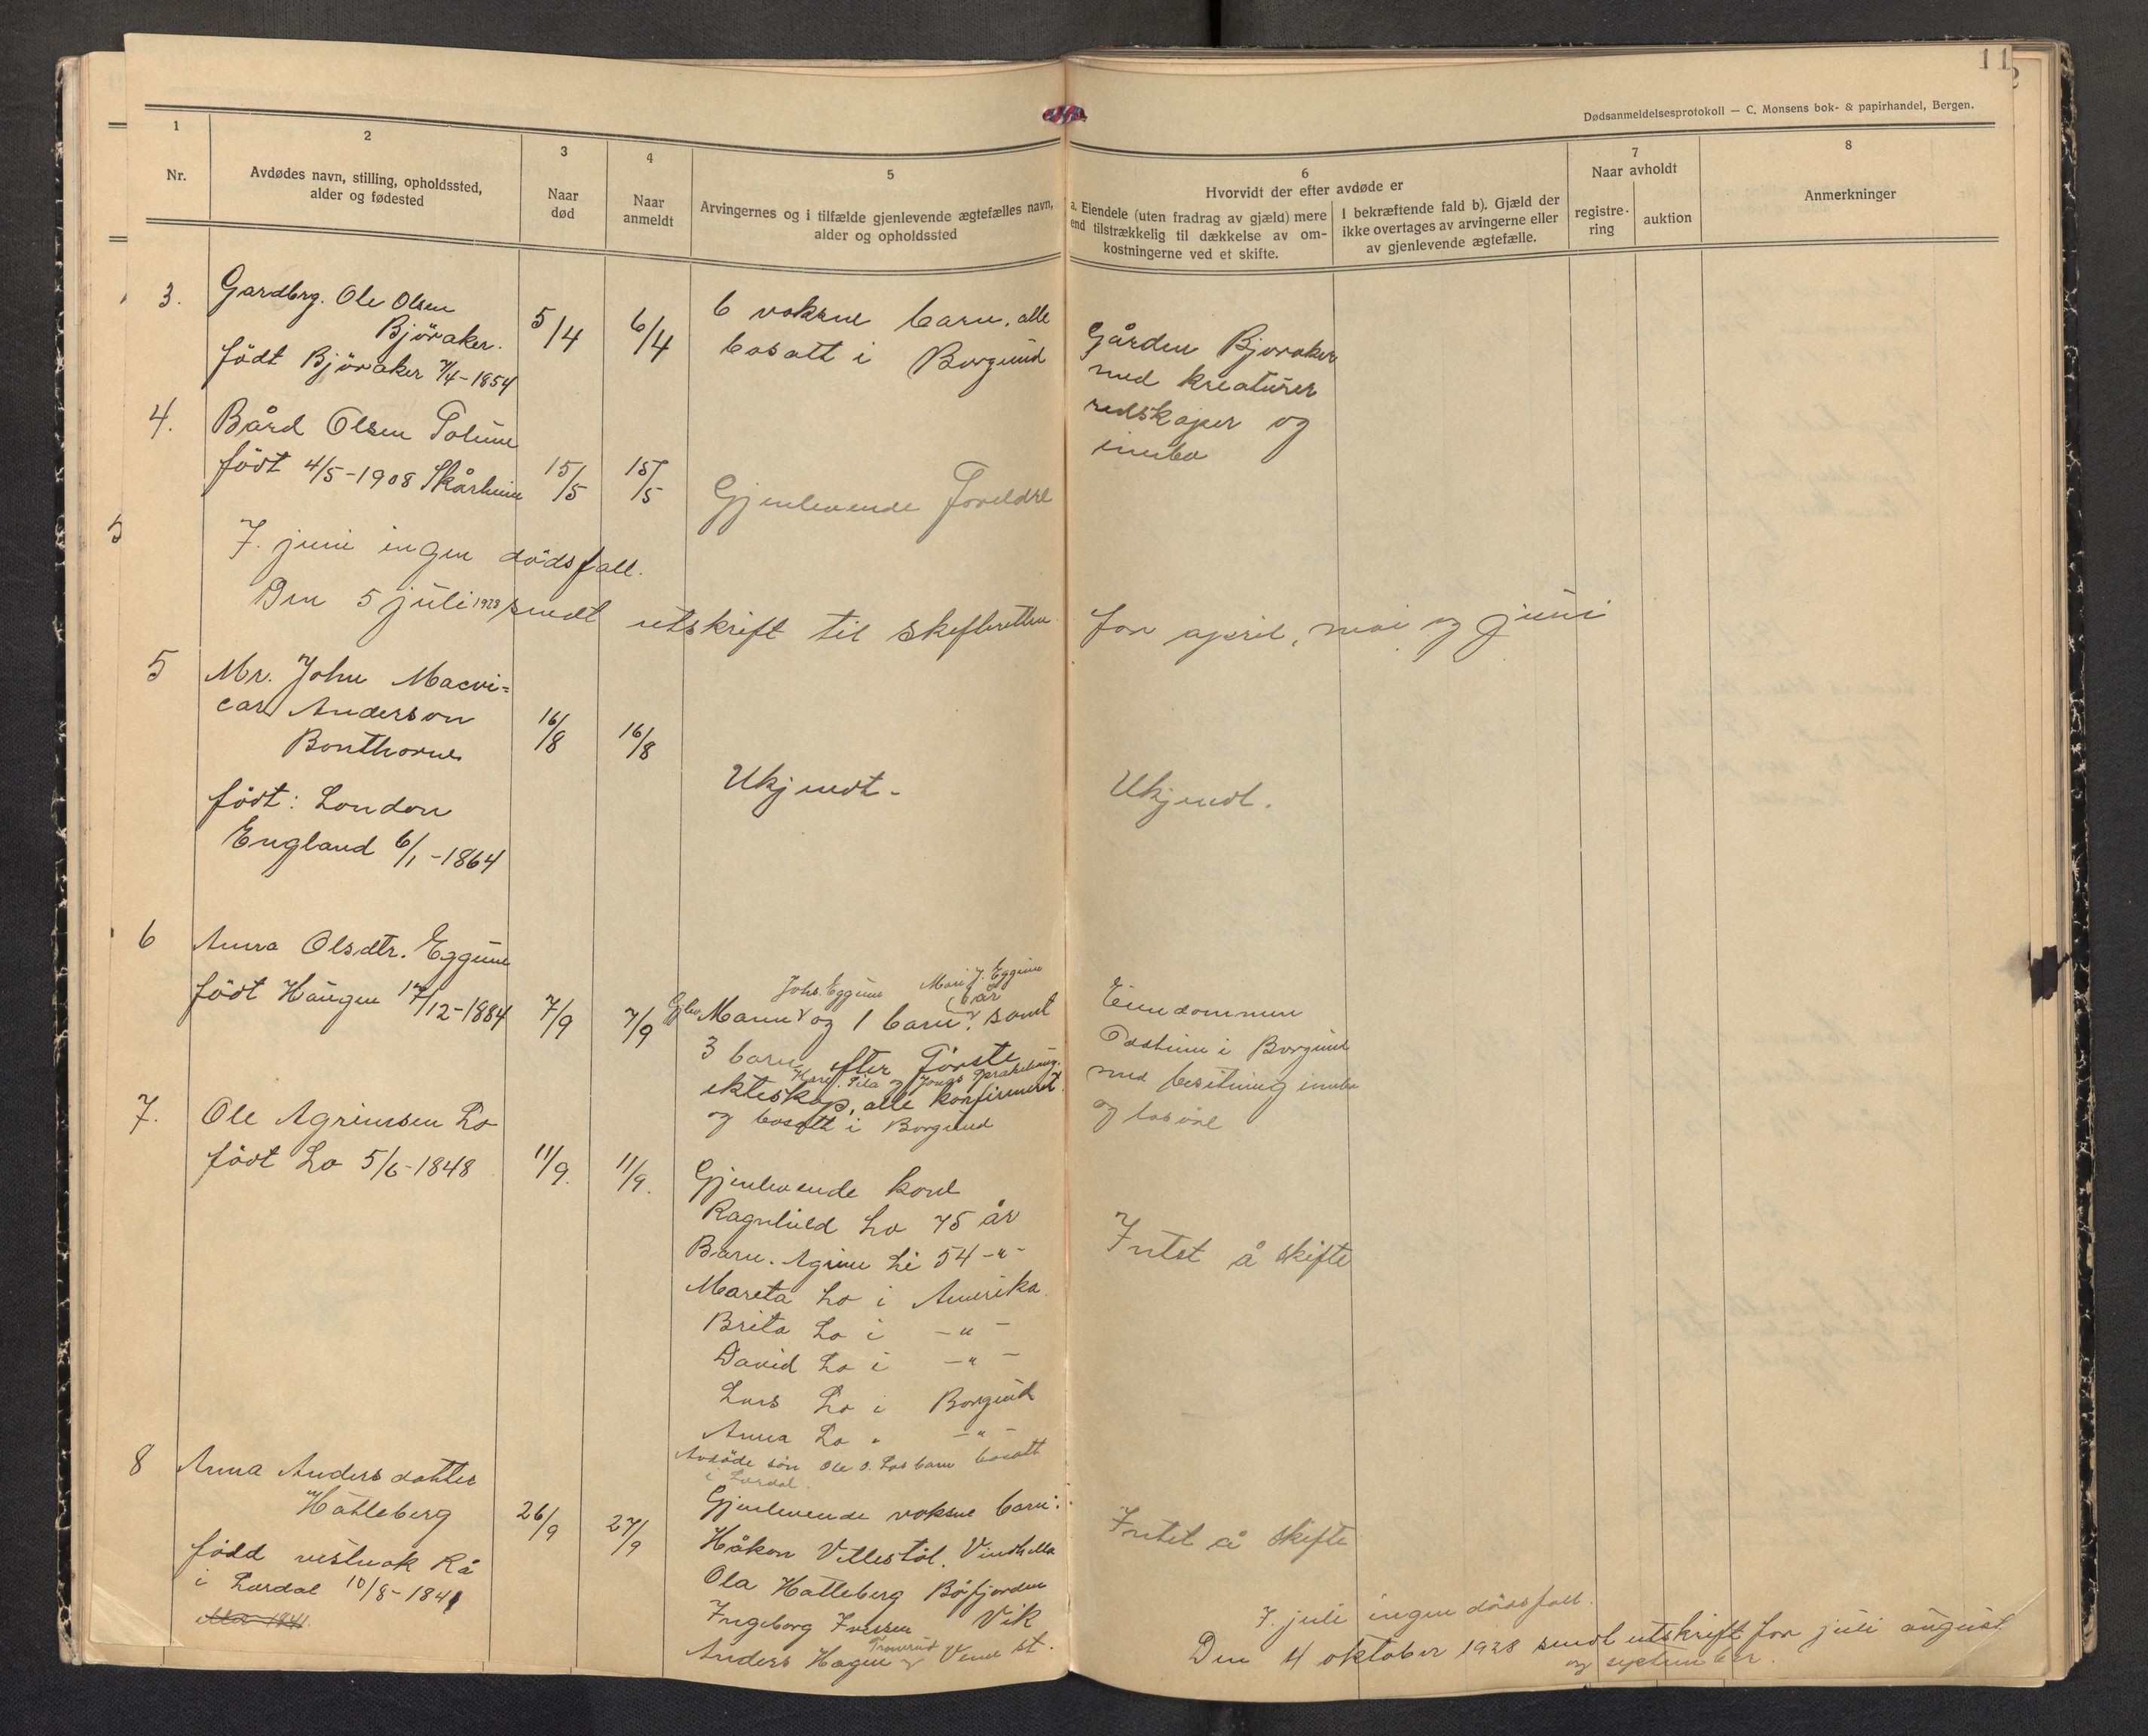 11
Dødsanmeldelsesprotokoll — C. Monsens bok- & papirhandel, Bergen.
1
Nr.
2
Avdødes navn, stilling, opholdssted,
alder og fødested
3
Naar
død
4
Naar
anmeldt
5
Arvingernes og i tilfælde gjenlevende ægtefælles navn,
alder og opholdssted
6
Hvorvidt der efter avdøde er
a. Eiendele (uten fradrag av gjæld) mere
end tilstrækkelig til dækkelse av om-
kostningerne ved et skifte.
I bekræftende fald b). Gjæld der
ikke overtages av arvingerne eller
av gjenlevende ægtefælle.
7
Naar avholdt
registre-
ring
auktion
8
Anmerkninger
3.
Gardbrg. Ole Olsen
Björaker.
födt Björaker 7/4-1854
5/4
6/4
6 voksne barn, alle
bosatt i Borgund
Gården Bjoraker
med kreaturer
redskaper og
innbo
4.
Bård Olsen
födt 4/5-1908 Skårheim
15/5
15/5
Gjenlevende Foreldre
5
7. juni ingen dödsfall.
Den 5 juli 1928 sendt utskrift til skifteretten for april, mai og juni
5
Mr. John Macvi=
car Anderson
Bonthorne
födt: London
England 6/1-1864
16/8
16/8
Ukjendt.
Ukjendt.
6
Anna Olsdtr. Eggum
födt Haugen 17/12-1884
7/9
7/9
Johs. Eggum Mari J. Eggum
6 år
Gjlev. Mann og 1 barn, samt
3 barn efter Förste
ekteskap, alle konfirmert
og bosatt i Borgund
Eiendommen
i Borgund
med besetning innbo
og lösöre
7.
Ole Agrimsen Lo
födt Lo 5/6-1848
11/9.
11/9.
Gjenlevende kone
Ragnhild Lo 75 år
Barn. Agrim Li 54 -"-
Mareta Lo i Amerika.
Brita Lo i -"-
David Lo i -"-
Lars Lo i Borgund
Anna Lo " -"-
Avdöde sön Ole O. Los barn bosatt
i Lærdal.
Intet å skifte
8
Anna Andersdatter
Hatleberg
född Rå
i Lærdal 10/8-1841
1841
26/9
27/9
Gjenlevende voksne barn:
Håkon Villestöl. Vindhella
Ola Hatleberg Böfjorden
Ingeborg Iversen Vik
Anders Hagen
Intet å skifte
7. juli ingen dödsfall.
Den 4 oktober 1928 sendt utskrift for juli august
og september.